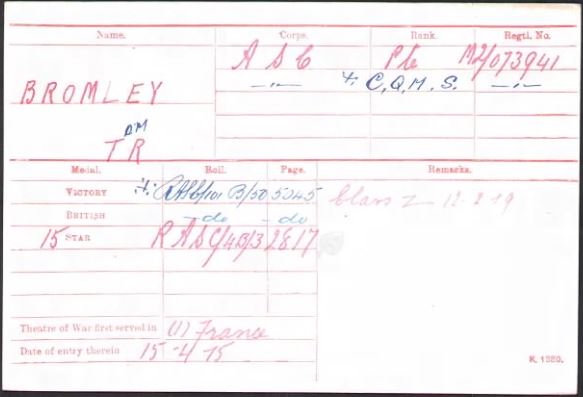 Name. Corps. Rank. Regtl. No.
A S C Pte M2/073941
BROMLEY —"— C.Q.M.S. —"—
T R
Medal. Roll. Page. Remarks.
VICTORY B/50 5345 Class Z 12.2.19
BRITISH - do - do
15 STAR R ASC/4B/3 2817
Theatre of War first served in (1) France
Date of entry therein 15-4-15
K. 1380.